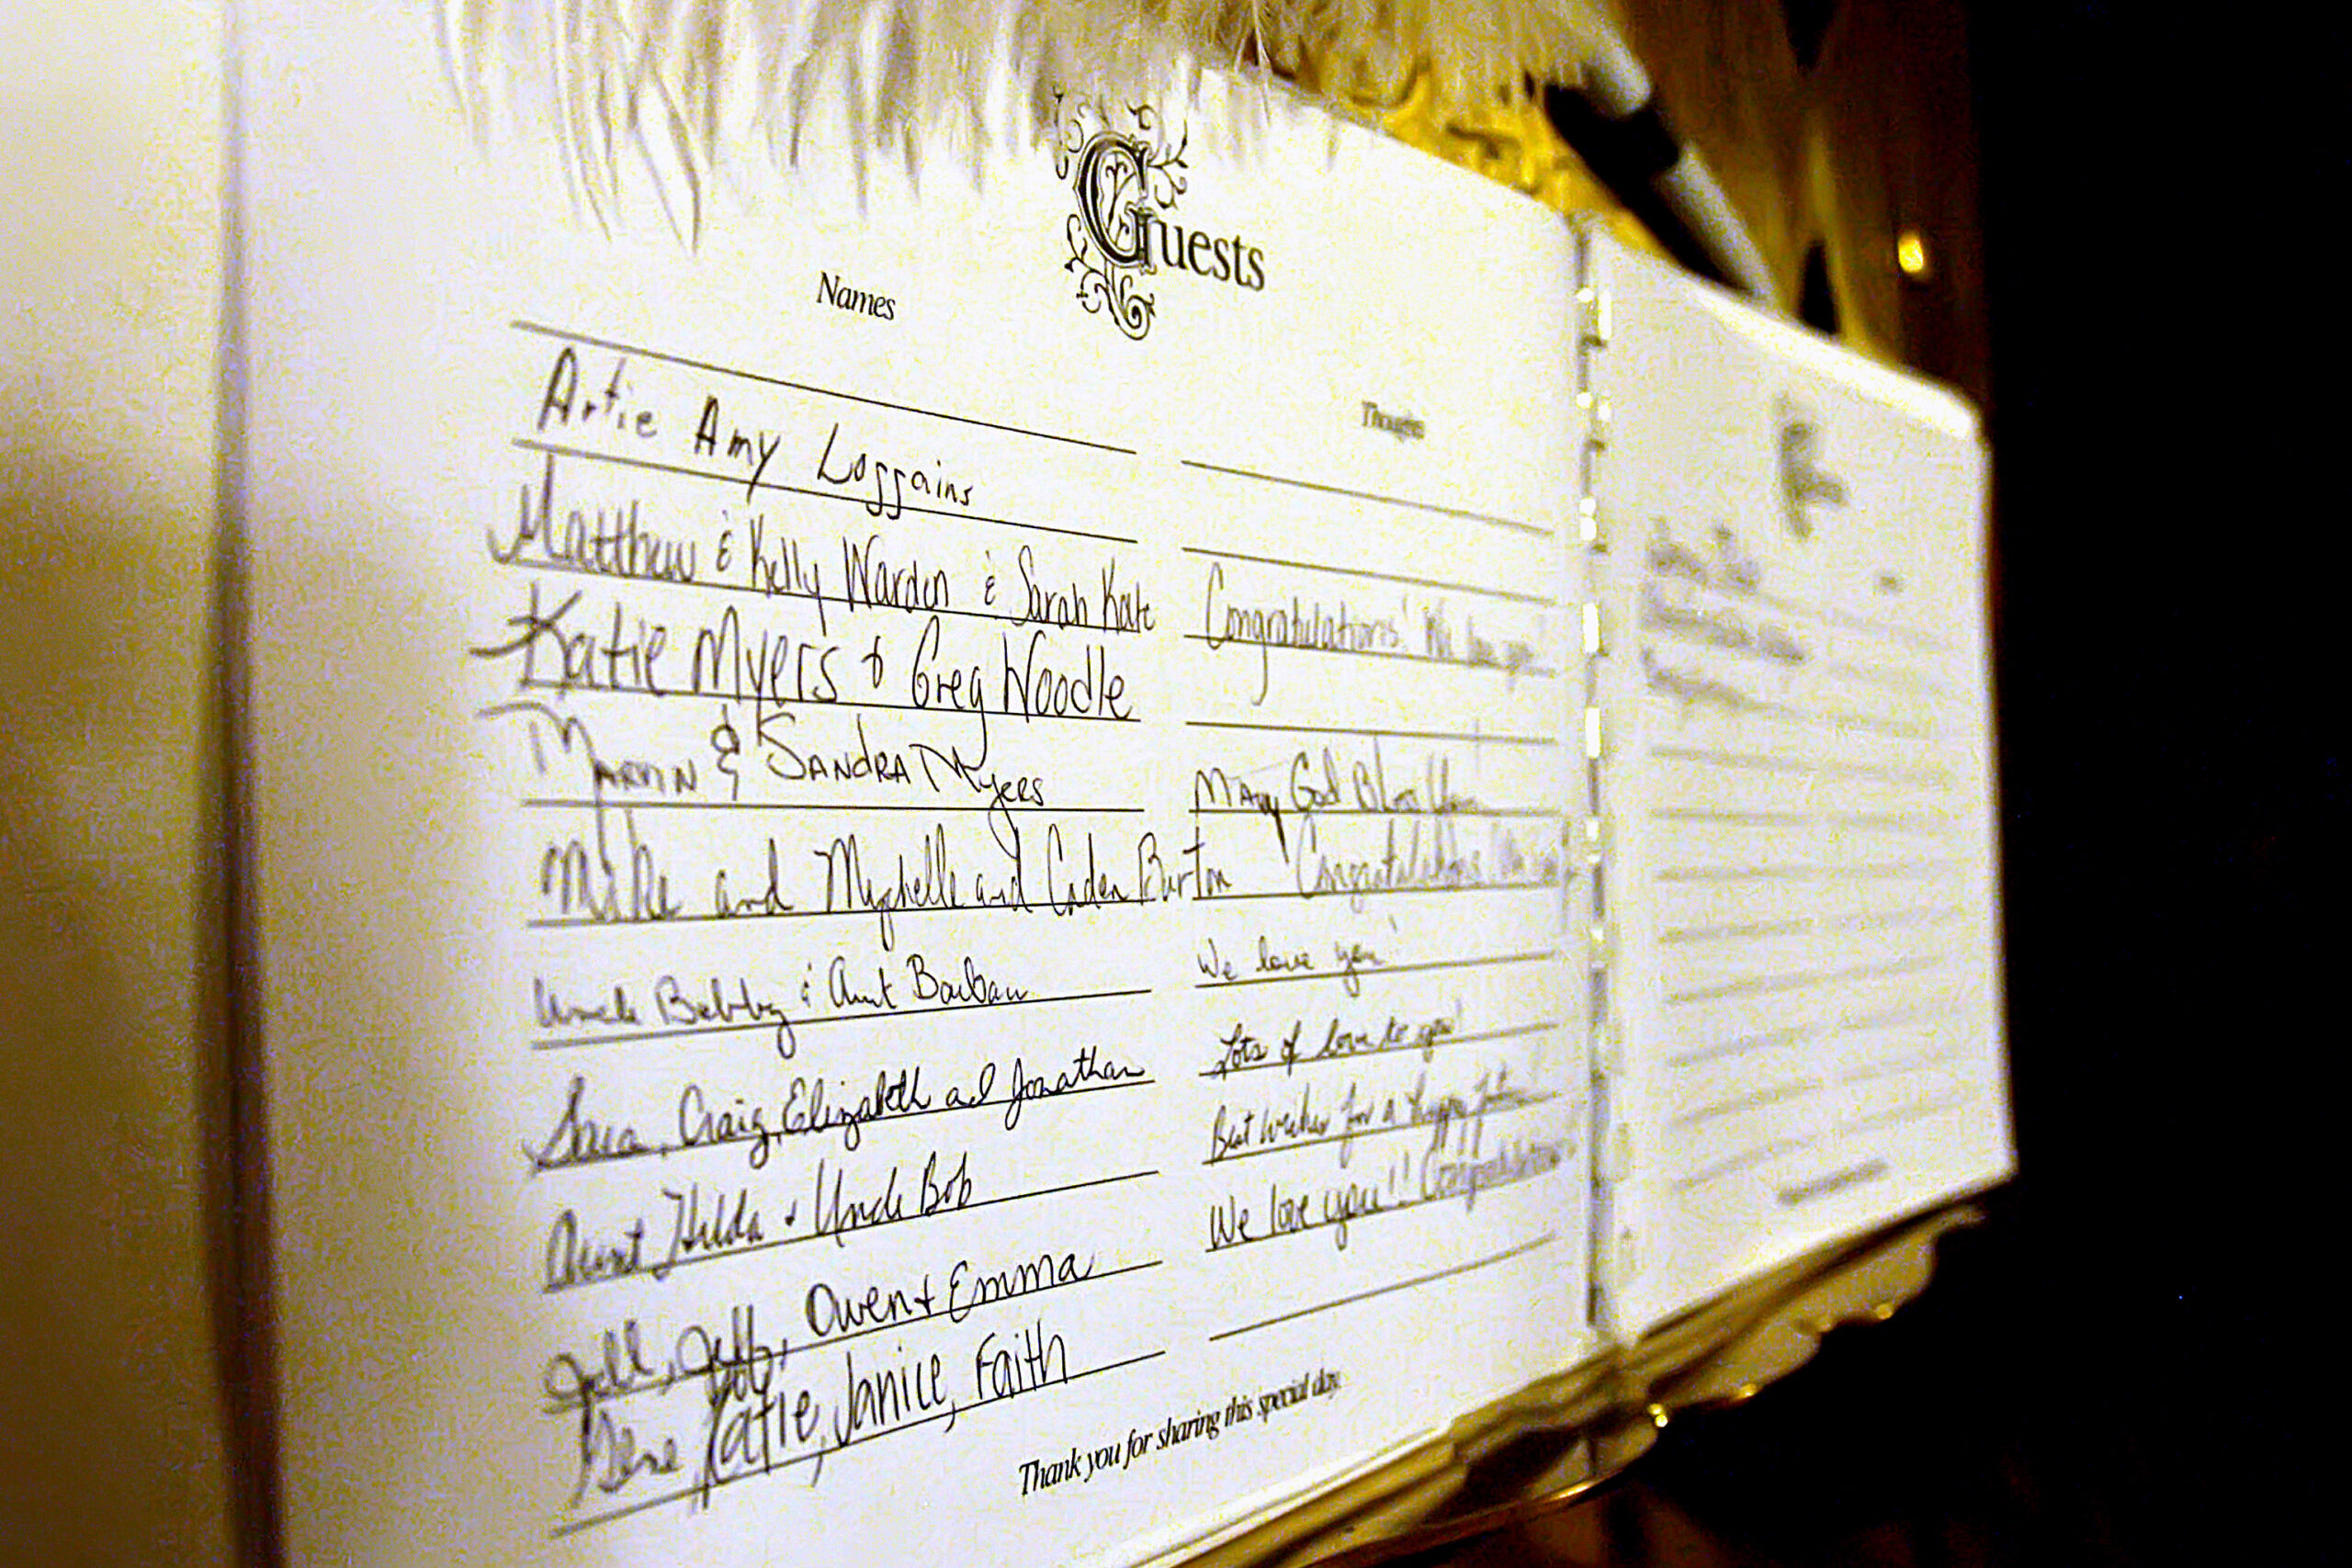 Guests
Names Thoughts
Artie Amy Loggains
Matthew & Kelly Warden & Sarah Kate Congratulations! We love you!
Katie Myers & Greg Woodle
Marvin & Sandra Myers May God Bless You
Mike and Mychelle and Caden Burton Congratulations
Uncle Bobby & Aunt Barbara We love you!
Sara, Craig, Elizabeth and Jonathan Lots of love to you!
Aunt Hilda & Uncle Bob Best wishes for a happy future
Jill, Jeff, Owen + Emma We love you!! Congratulations!
Gene, Katie, Janice, Faith
Thank you for sharing this special day.